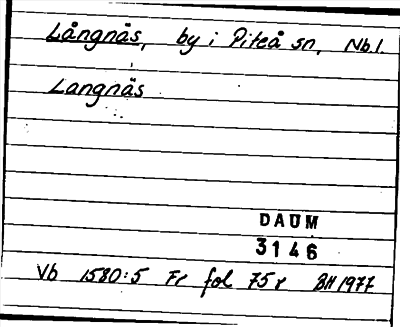 Långnäs, by i Piteå sn, Nbl.
Langnäs
DAUM
3146
Vb 1580:5 Fr fol 75r BH 1977